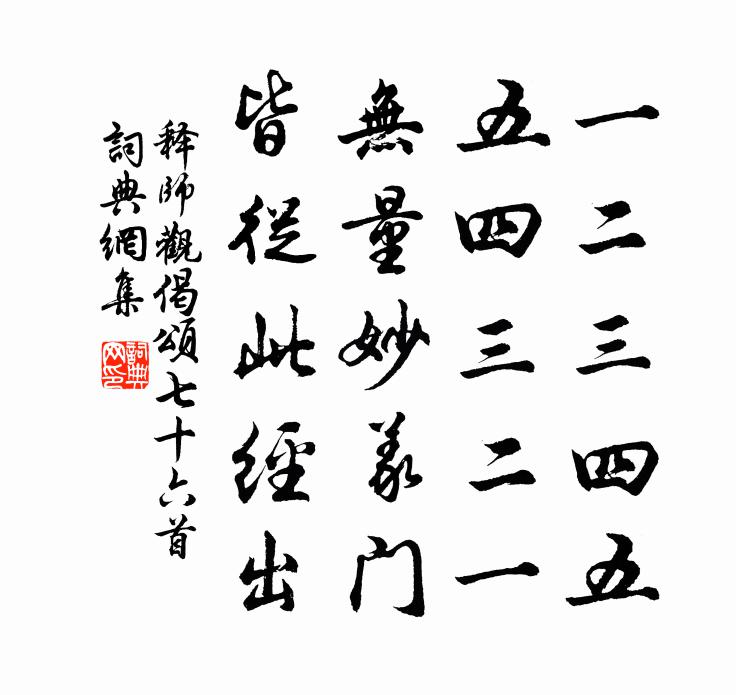 一二三四五
五四三二一
無量妙義門
皆從此經出
释師觀偈頌七十六首
詞典網集
詞典网印